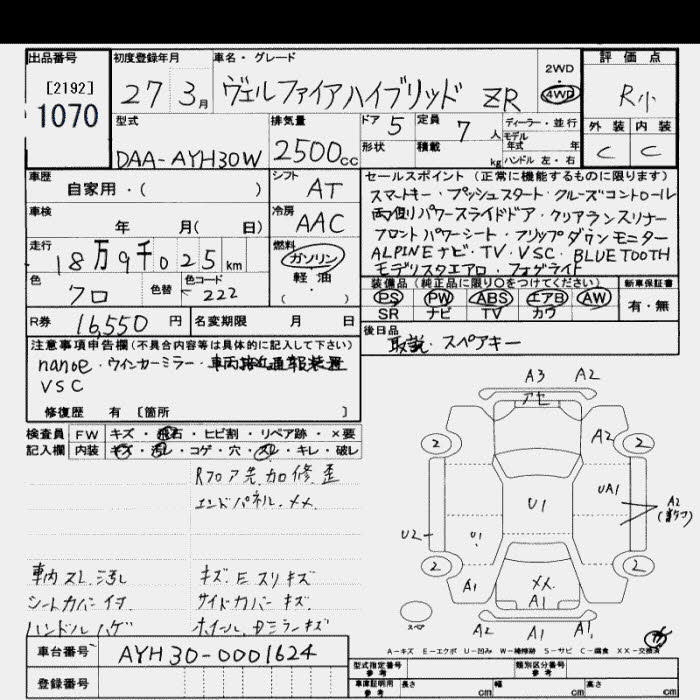 出品番号
[2192]
1070
初度登録年月
27 3月
車名・グレード
ヴェルファイアハイブリッド ZR
2WD
4WD
評価点
R小
外装 内装
C C
型式
DAA-AYH30W
排気量
2500cc
ドア 5
形状
定員 7人
積載 kg
ディーラー・並行
モデル年式 年
ハンドル 左・右
車歴
自家用・( )
シフト
AT
車検
年 月( 日)
冷房
AAC
走行
18万9千025km
燃料
ガソリン
軽油
( )
色
クロ
色替
色コード
222
R券 16,550円
名変期限 月 日
セールスポイント(正常に機能するものに限ります)
スマートキー・プッシュスタート・クルーズコントロール
両側パワースライドドア・クリアランスソナー
フロントパワーシート・フリップダウンモニター
ALPINEナビ・TV・VSC・BLUETOOTH
モデリスタエアロ・フォグライト
装備品(純正品に限り○をつけてください)
PS PW ABS エアB AW
SR ナビ TV カワ
新車保証書
有・無
後日品
取説・スペアキー
注意事項申告欄(不具合内容等は具体的に記入して下さい)
nanoe・ウインカーミラー・車両接近通報装置
VSC
修復歴 有 [箇所 ]
検査員記入欄
FW キズ・飛石・ヒビ割・リペア跡・×要
内装 キズ・汚レ・コゲ・穴・スレ・キレ・破レ
Rフロア先加修歪
エンドパネル、××
車内スレ、汚レ
シートカバーイタ
ハンドルハゲ
キズ、E、スリキズ
サイドカバーキズ
ホイール、Dミラーキズ
A3 A2
アセ
2 2
A2
U1
UA1
A2
U2
U1
2 2
A1
××
A1
A1
スペア
A2 A1 A1
A-キズ E-エクボ U-凹み W-補修跡 S-サビ C-腐食 XX-交換済
車台番号 AYH30-0001624
登録番号
型式指定番号 参考
類別区分番号 参考
車庫証明用 参考
長さ cm 幅 cm 高さ cm